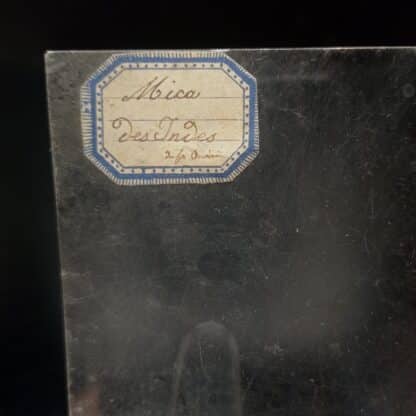 Mica
des Indes